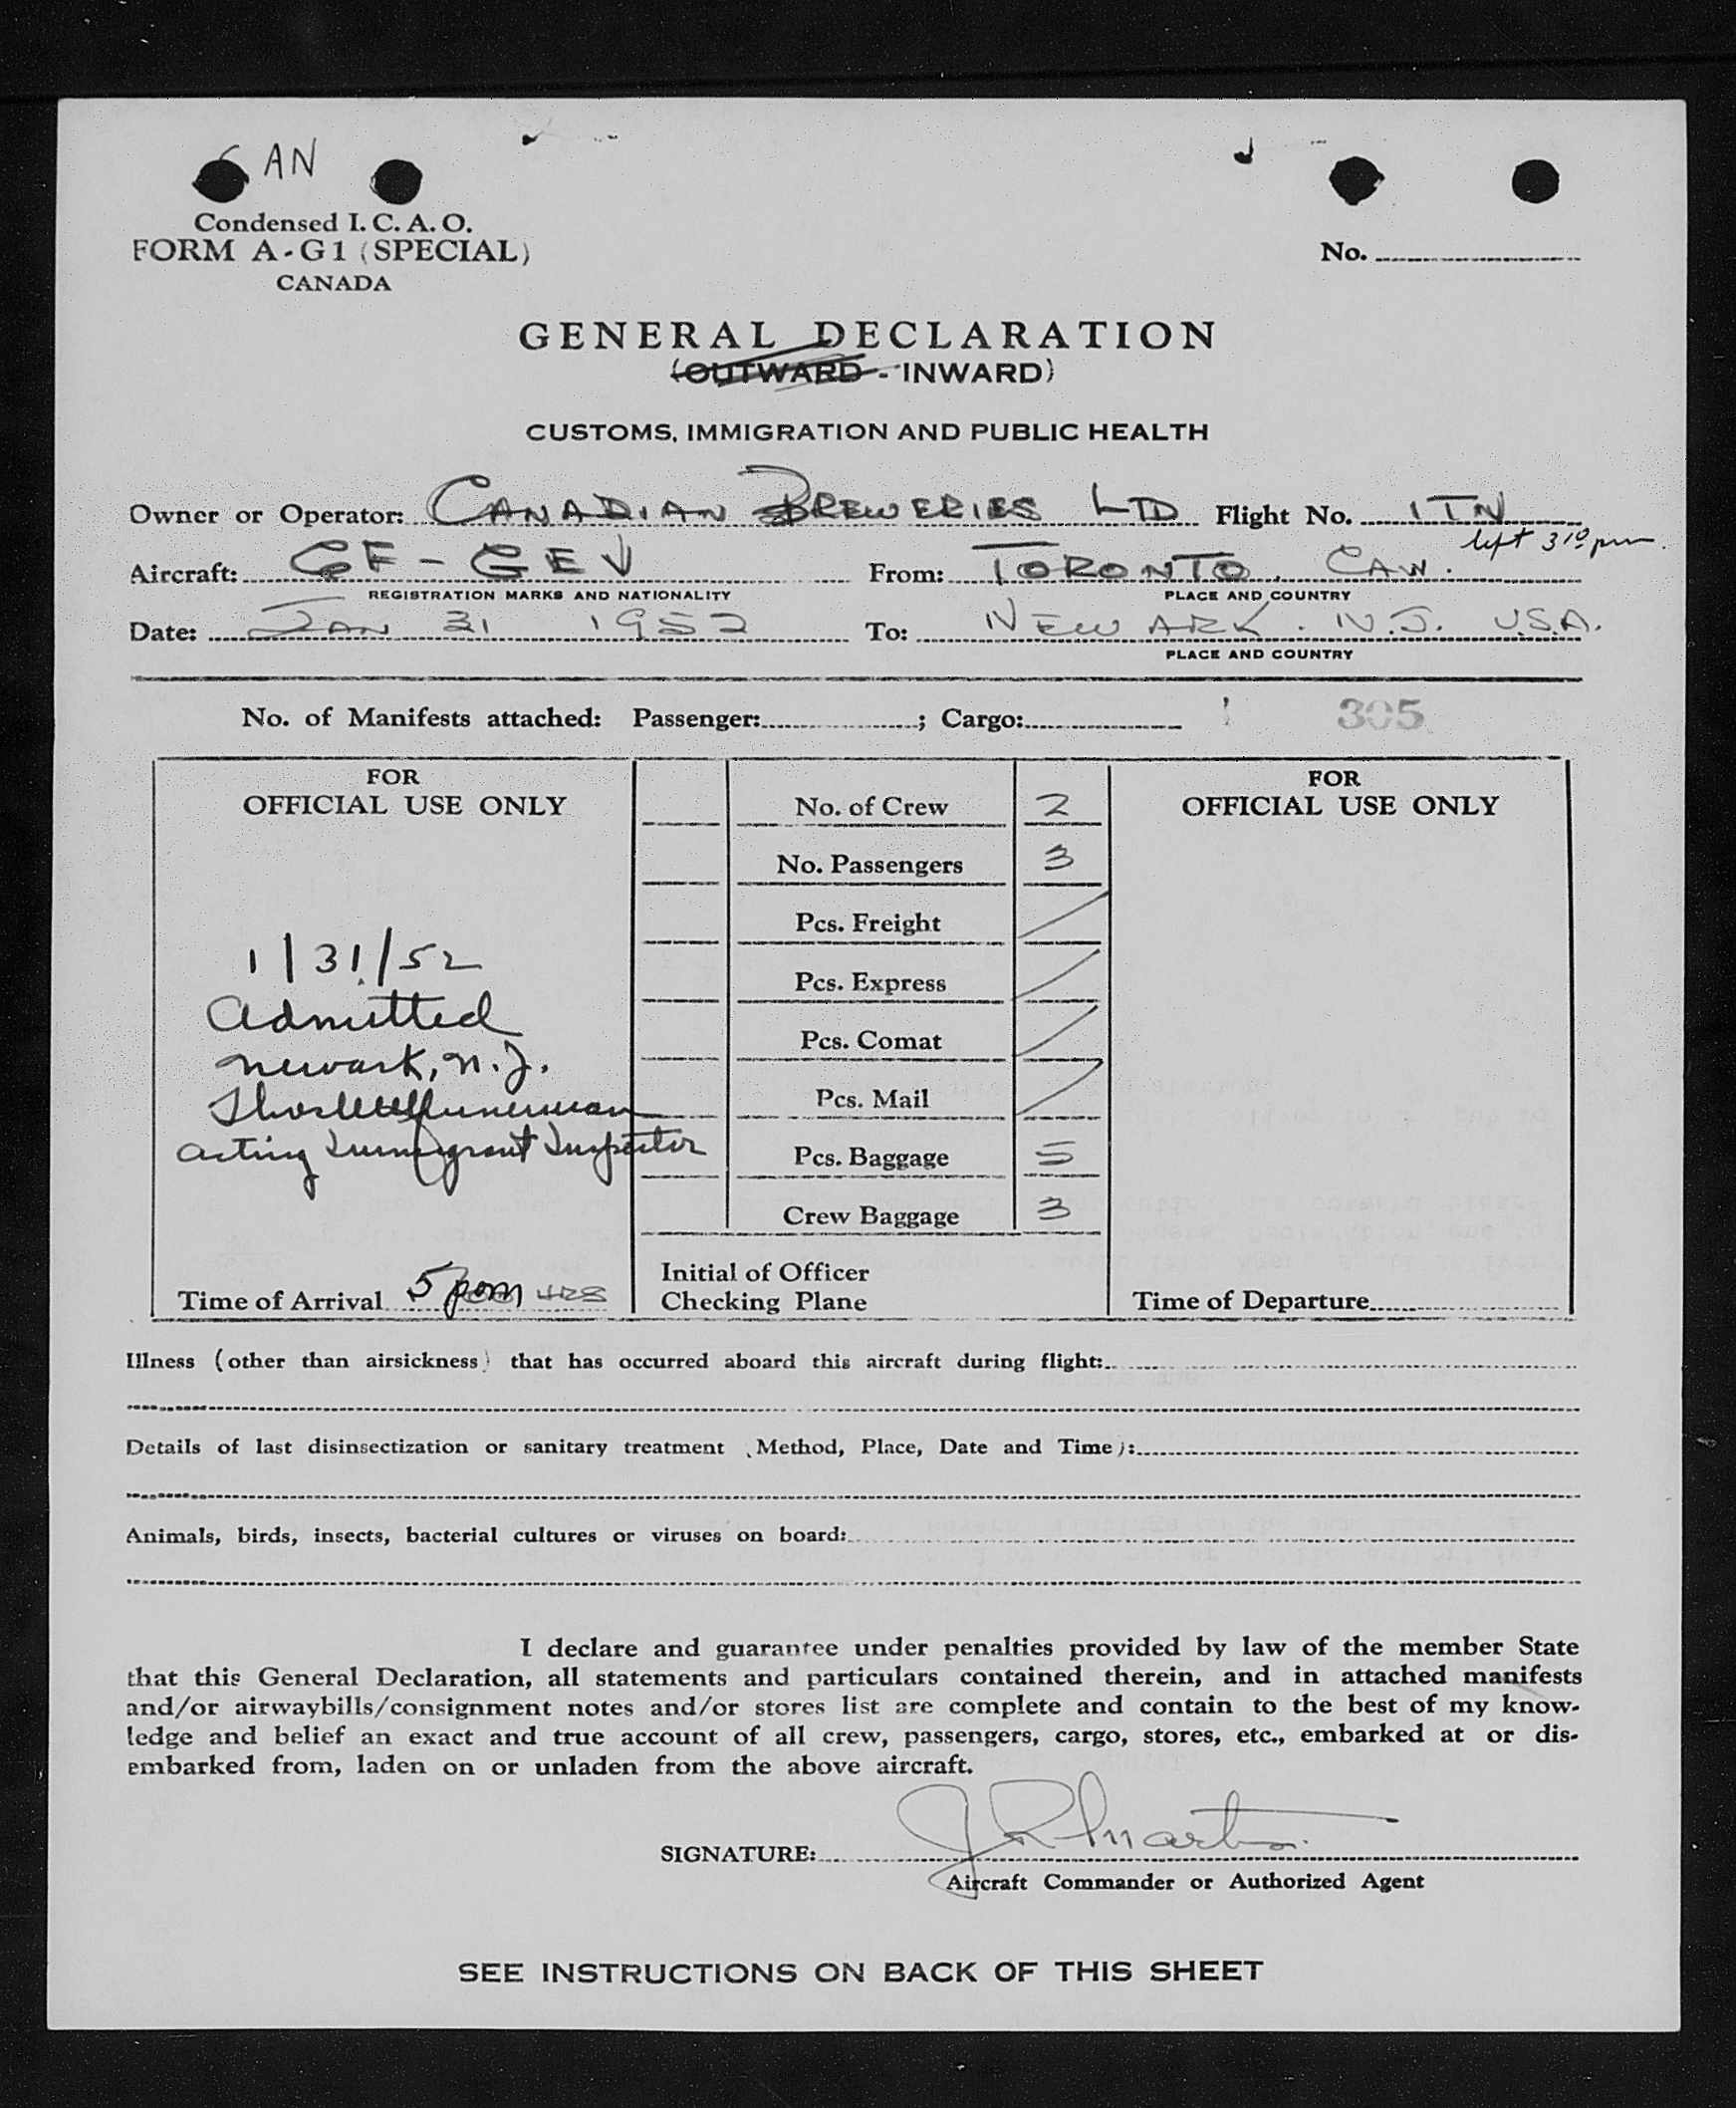 6 AN
Condensed I. C. A. O.
FORM A-G1 (SPECIAL)
CANADA
No.
GENERAL DECLARATION
(OUTWARD - INWARD)
CUSTOMS, IMMIGRATION AND PUBLIC HEALTH
Owner or Operator: CANADIAN BREWERIES LTD Flight No. 1 TN
left 3 10 pm.
Aircraft: CF - GEV From: TORONTO, CAN.
REGISTRATION MARKS AND NATIONALITY PLACE AND COUNTRY
Date: JAN 31 1952 To: NEWARK. N.J. U.S.A.
PLACE AND COUNTRY
No. of Manifests attached: Passenger: ; Cargo: 305
FOR OFFICIAL USE ONLY
No. of Crew 2
No. Passengers 3
Pcs. Freight
Pcs. Express
Pcs. Comat
Pcs. Mail
Pcs. Baggage 5
Crew Baggage 3
1/31/52
Admitted
Newark, N.J.
Acting Immigrant Inspector
Time of Arrival 5 pm HRS
Initial of Officer
Checking Plane
FOR OFFICIAL USE ONLY
Time of Departure
Illness (other than airsickness) that has occurred aboard this aircraft during flight:
Details of last disinsectization or sanitary treatment (Method, Place, Date and Time):
Animals, birds, insects, bacterial cultures or viruses on board:
I declare and guarantee under penalties provided by law of the member State
that this General Declaration, all statements and particulars contained therein, and in attached manifests
and/or airwaybills/consignment notes and/or stores list are complete and contain to the best of my know-
ledge and belief an exact and true account of all crew, passengers, cargo, stores, etc., embarked at or dis-
embarked from, laden on or unladen from the above aircraft.
SIGNATURE: J R Martin
Aircraft Commander or Authorized Agent
SEE INSTRUCTIONS ON BACK OF THIS SHEET